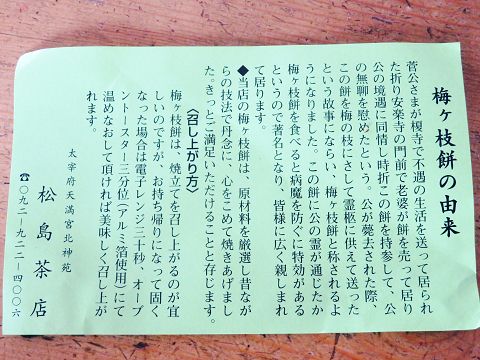 梅ヶ枝餅の由来
菅公さまが榎寺で不遇の生活を送って居られ
た折り安楽寺の門前で老婆が餅を売って居り
公の境遇に同情し時折この餅を持参して、公
の無聊を慰めたという。公が薨去された際、
この餅を梅の枝にさして霊柩に供えて送った
という故事にならい、梅ヶ枝餅と称されるよ
うになりました。この餅に公の霊が通じたか
梅ヶ枝餅を食べると病魔を防ぐに特効がある
というので著名となり、皆様に広く親しまれ
て居ります。
◆当店の梅ヶ枝餅は、原材料を厳選し昔なが
らの技法で丹念に、心をこめて焼きあげまし
た。きっとご満足いただけることと存じます。
〈召し上がり方〉
梅ヶ枝餅は、焼立てを召し上がるのが宜
しいのですが、お持ち帰りになって固く
なった場合は電子レンジ三十秒、オーブ
ントースター三分位(アルミ箔使用)にて
温めなおして頂ければ美味しく召し上が
れます。
太宰府天満宮北神苑
松島茶店
☎〇九二-九二二-四〇〇六